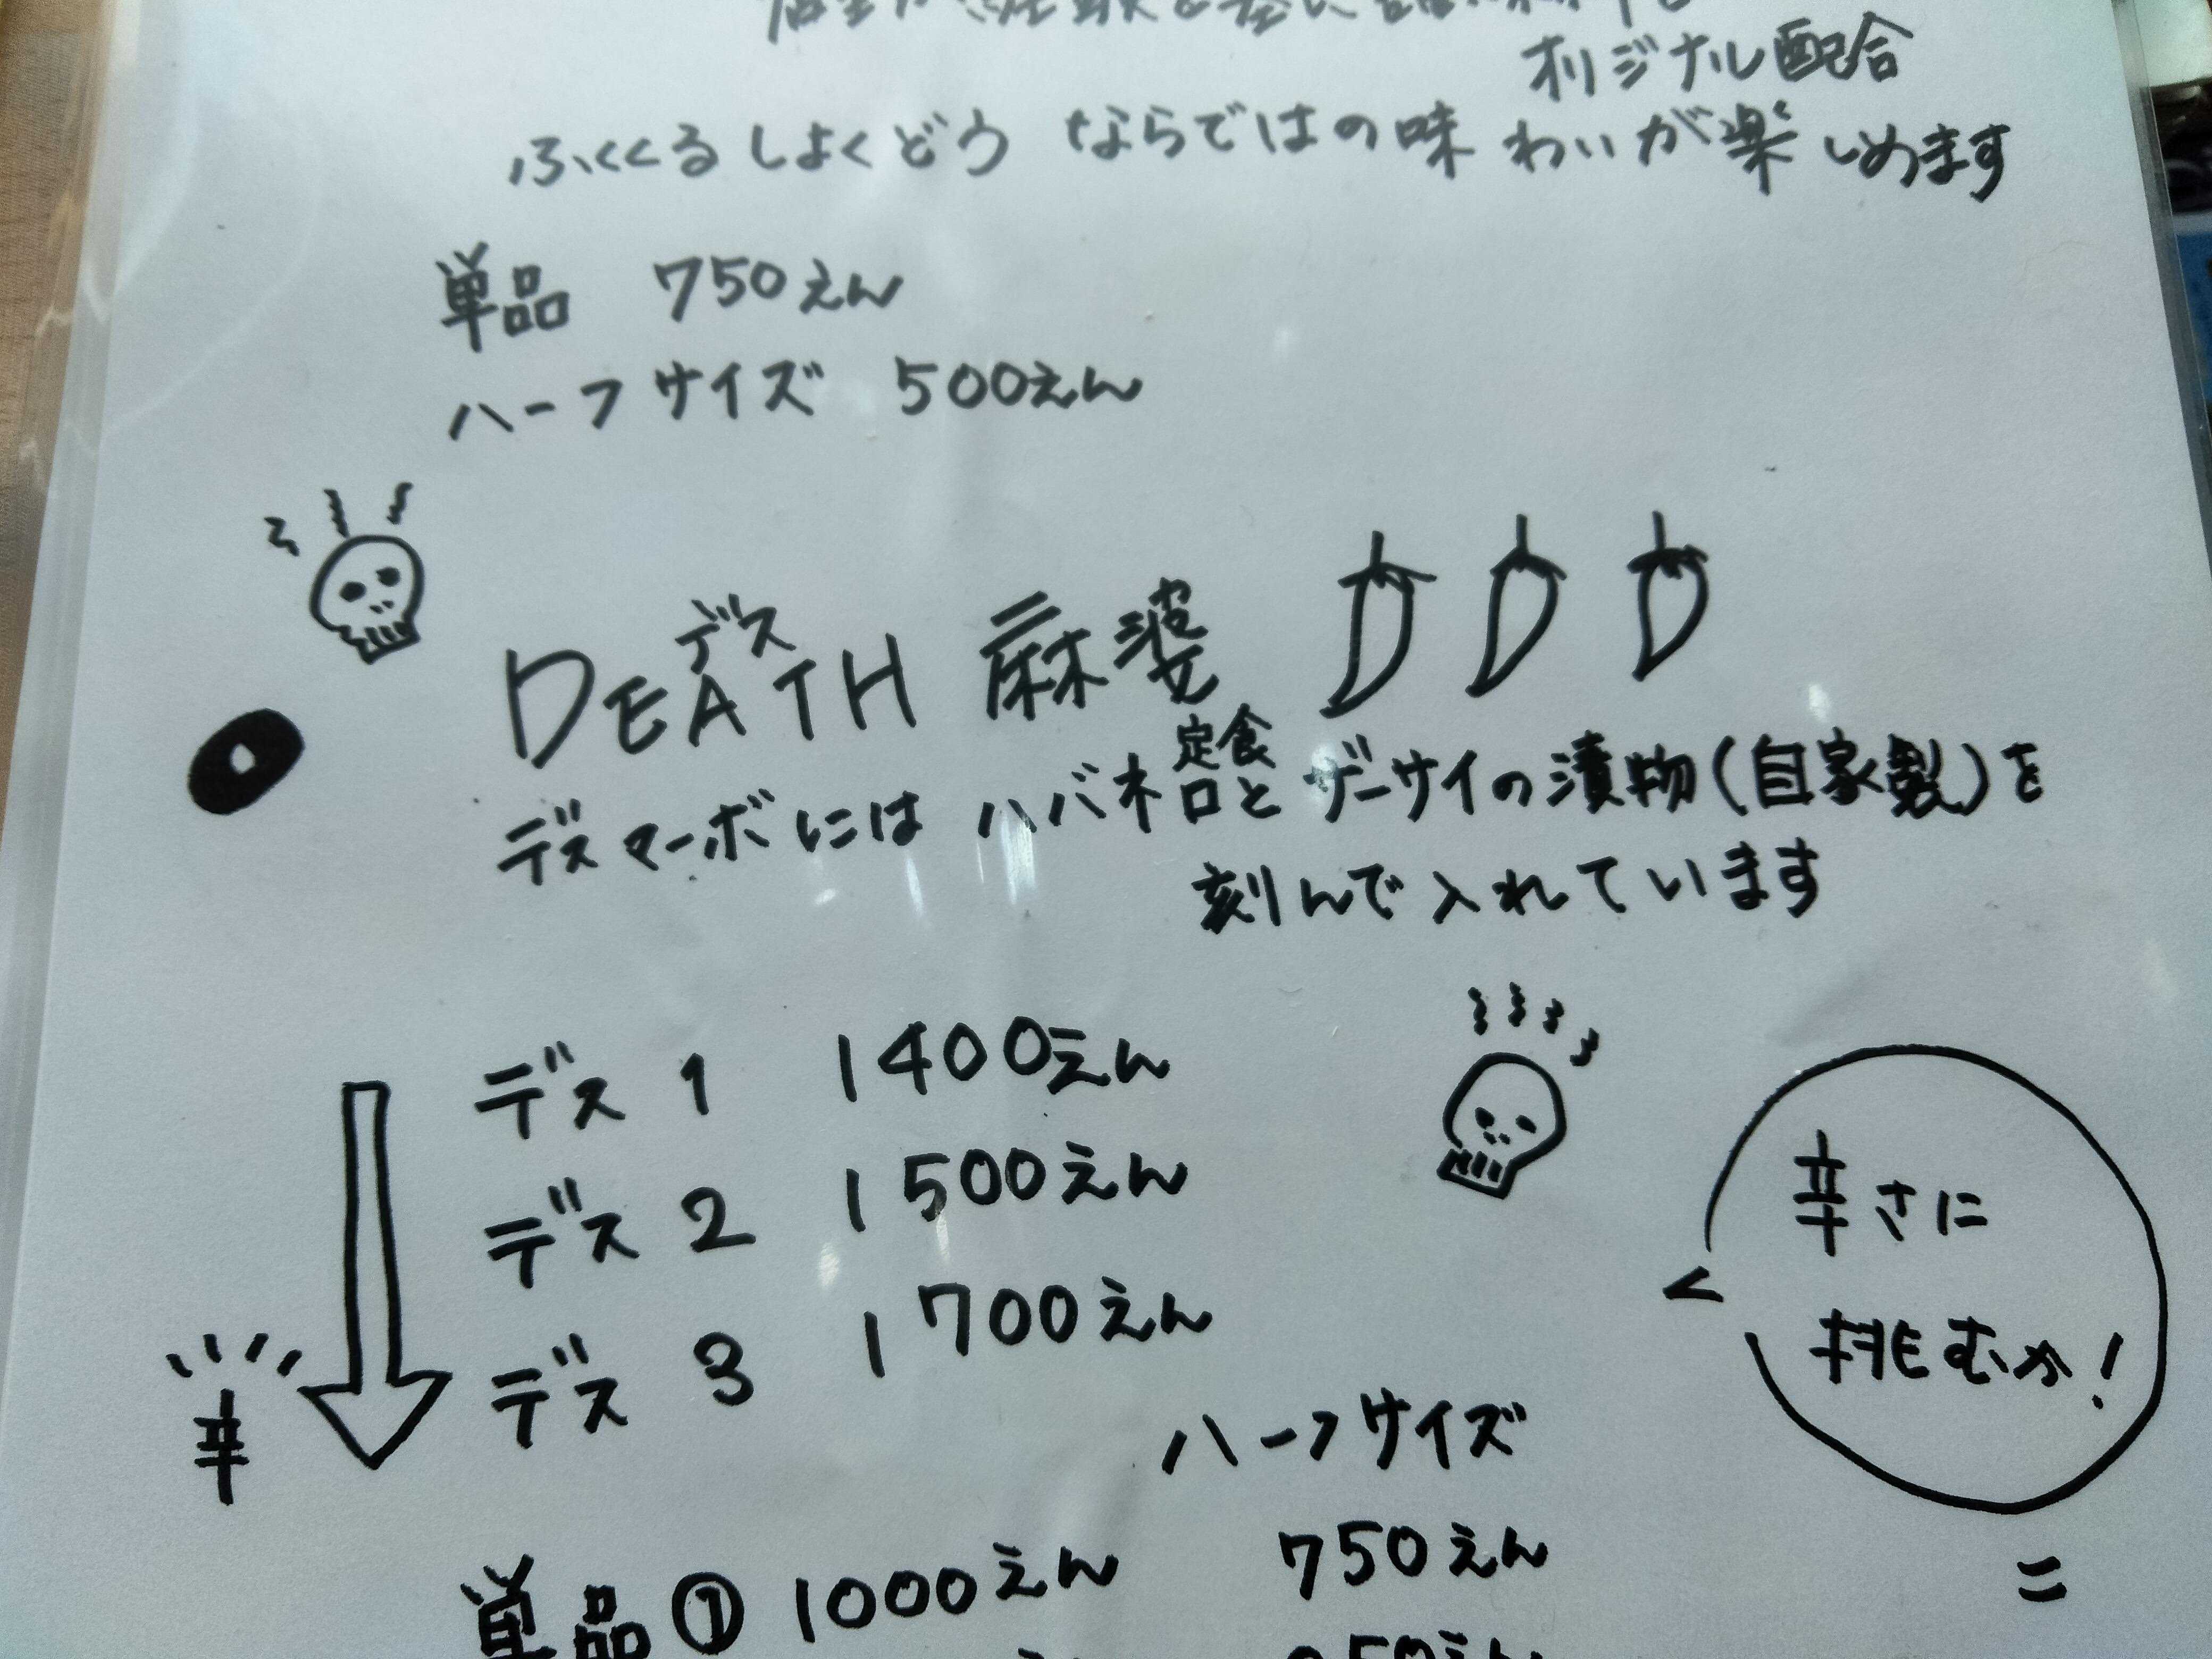 オリジナル配合
ふくくるしょくどう ならではの味わいが楽しめます
単品 750えん
ハーフサイズ 500えん
デス
DEATH 麻婆
定食
デスマーボにはハバネロとザーサイの漬物(自家製)を
刻んで入れています
デス1 1400えん
デス2 1500えん
デス3 1700えん
辛
辛さに
挑むか!
ハーフサイズ
単品① 1000えん 750えん